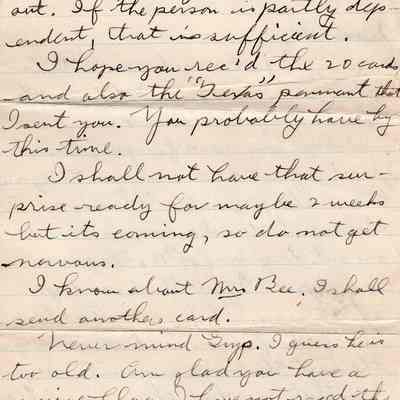 out. If the person is partly dep-
endent, that is sufficient.
I hope you rec'd the 20 cards
and also the "Texas" pennant that
I sent you. You probably have by
this time.
I shall not have that sur-
prise ready for maybe 2 weeks
but its coming, so do not get
nervous.
I know about Mrs Bee. I shall
send another card.
Never mind Guys. I guess he is
too old. Am glad you have a
I have not read the